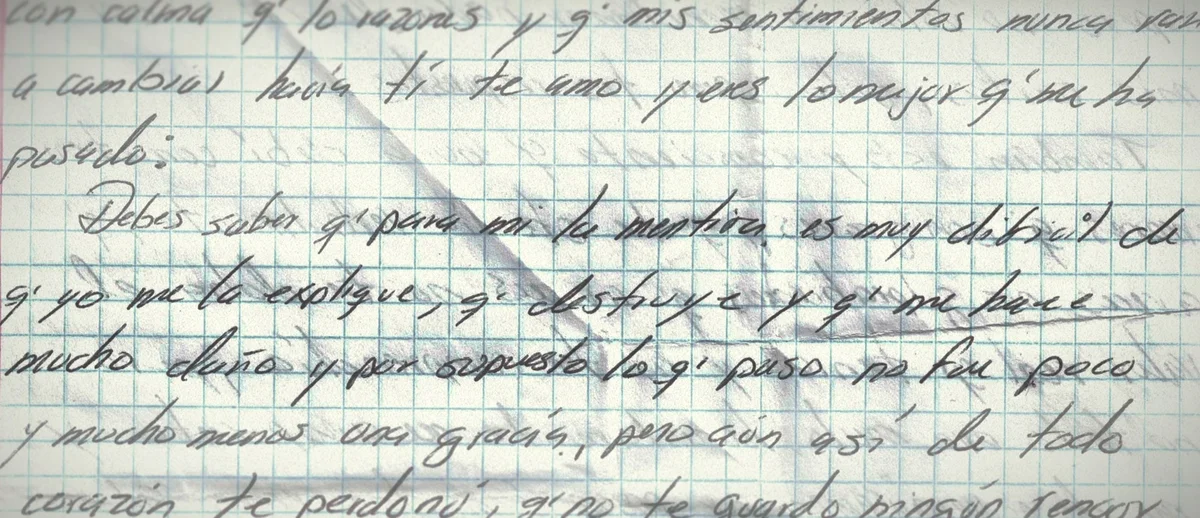 con calma q' lo razones y q' mis sentimientos nunca van
a cambiar hacia ti te amo y eres lo mejor q' me ha
pasado:
Debes saber q' para mi la mentira es muy dificil de
q' yo me la explique, q' destruye y q' me hace
mucho daño y por supuesto lo q' paso no fue poco
y mucho menos una gracia, pero aún así de todo
corazón te perdonó, q' no te guardo ningún rencor